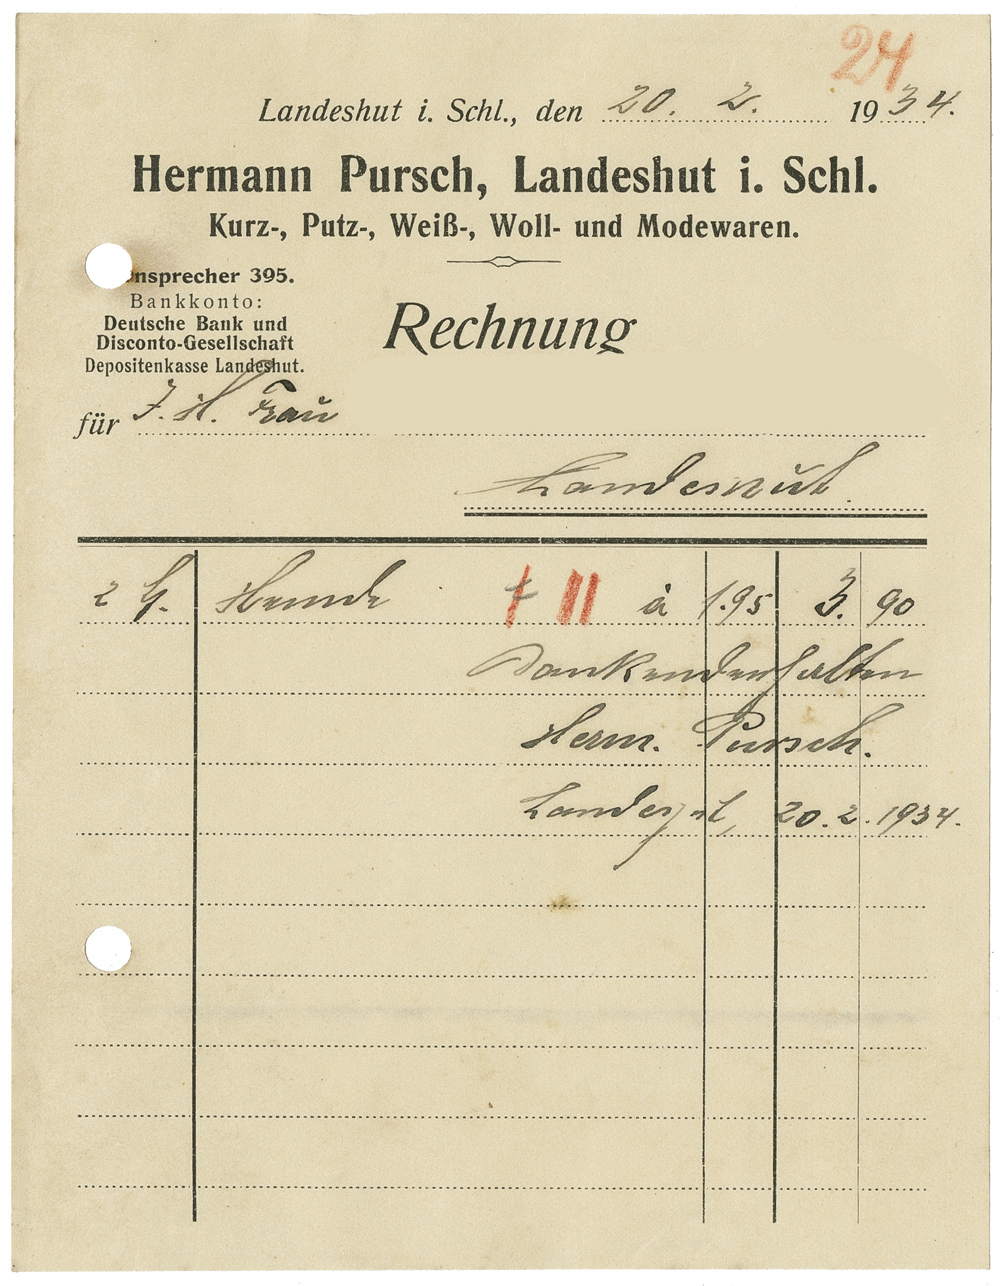 24
Landeshut i. Schl., den 20. 2. 1934.
Hermann Pursch, Landeshut i. Schl.
Kurz-, Putz-, Weiß-, Woll- und Modewaren.
nsprecher 395.
Bankkonto:
Deutsche Bank und
Disconto-Gesellschaft
Depositenkasse Landeshut.
Rechnung
für J. H. Frau
Landeshut.
2 Hemde à 1.95 3. 90
Dankend erhalten
Herm. Pursch.
Landeshut, 20. 2. 1934.